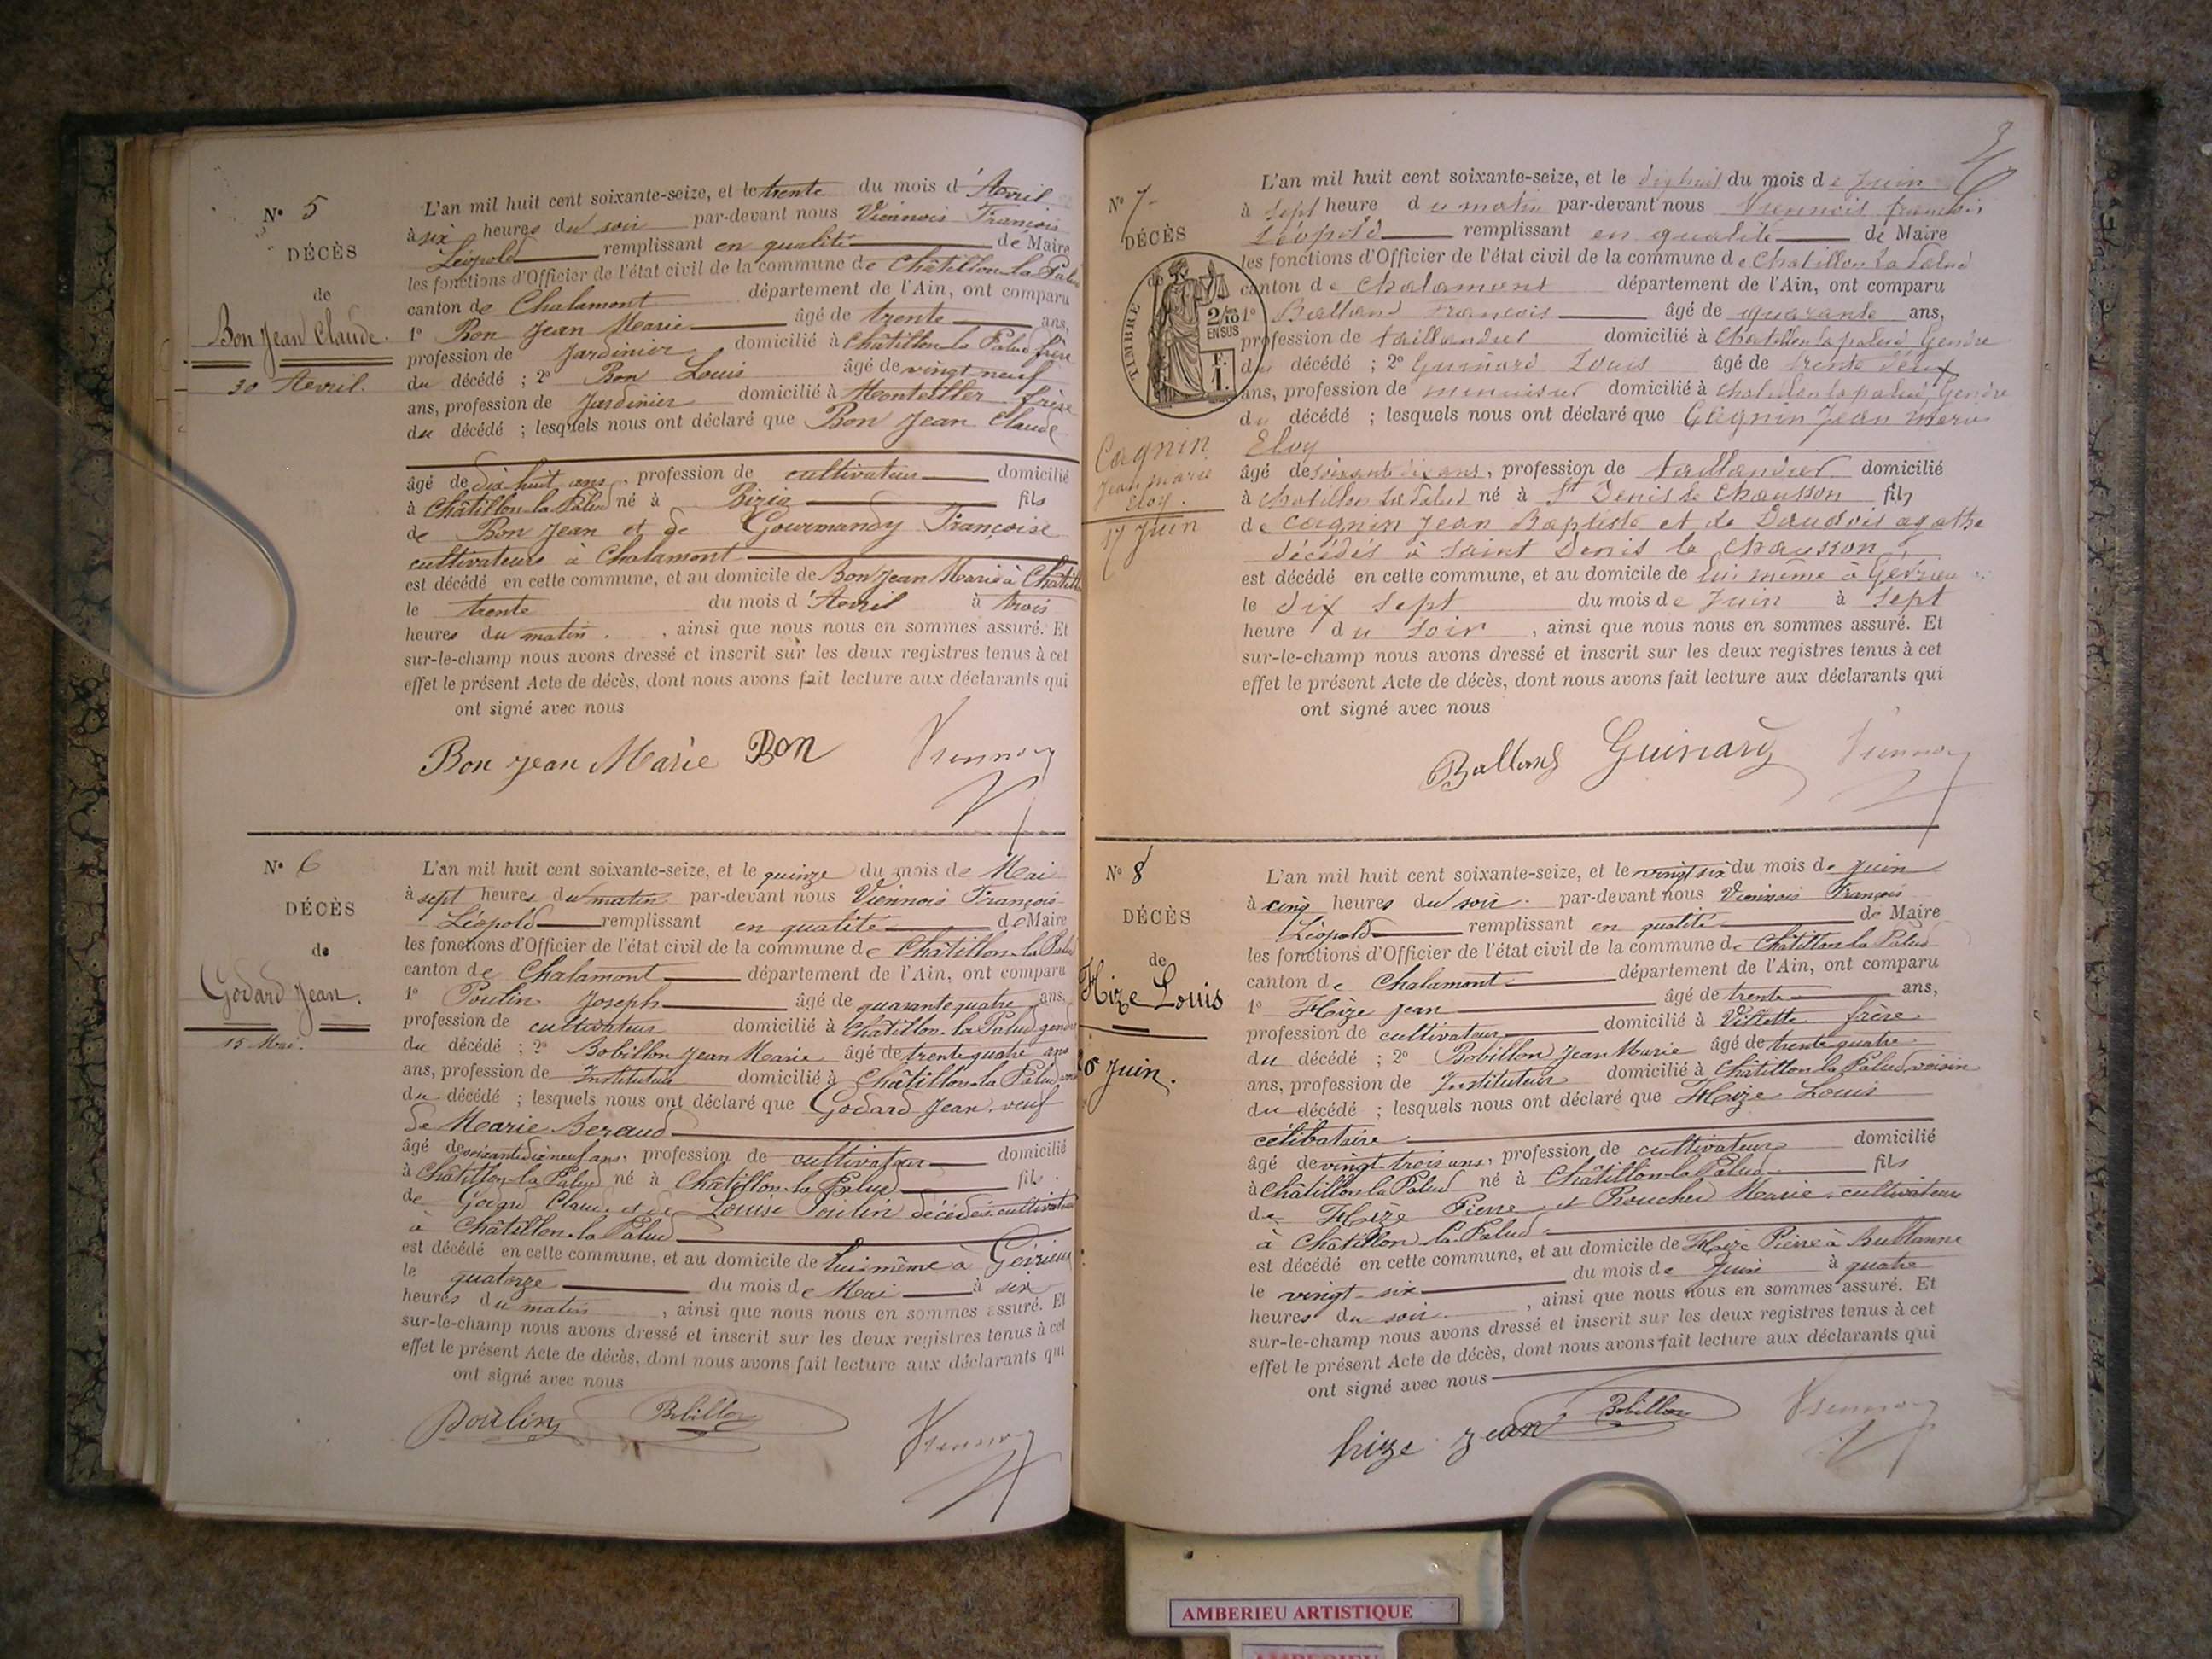 N° 5
DÉCÈS
de
Bon Jean Claude.
30 Avril.
L'an mil huit cent soixante-seize, et le trente du mois d'Avril
à six heures du soir par-devant nous Viennois François
Léopold remplissant en qualité de Maire
les fonctions d'Officier de l'état civil de la commune de Châtillon la Palud
canton de Chalamont département de l'Ain, ont comparu
1° Bon Jean Marie âgé de trente ans,
profession de Jardinier domicilié à Châtillon la Palud frère
du décédé ; 2° Bon Louis âgé de vingt-neuf
ans, profession de Jardinier domicilié à Montellier frère
du décédé ; lesquels nous ont déclaré que Bon Jean Claude
âgé de dix huit ans, profession de cultivateur domicilié
à Châtillon la Palud né à fils
de Bon Jean et de Gourmandy Françoise
cultivateurs à Chalamont
est décédé en cette commune, et au domicile de Bon Jean Marie à Châtill
le trente du mois d'Avril à trois
heures du matin. , ainsi que nous nous en sommes assuré. Et
sur-le-champ nous avons dressé et inscrit sur les deux registres tenus à cet
effet le présent Acte de décès, dont nous avons fait lecture aux déclarants qui
ont signé avec nous
Bon Jean Marie Bon Viennois
N° 6
DÉCÈS
de
Godard Jean.
15 Mai.
L'an mil huit cent soixante-seize, et le quinze du mois de Mai
à sept heures du matin par-devant nous Viennois François
Léopold remplissant en qualité de Maire
les fonctions d'Officier de l'état civil de la commune de Châtillon la Palud
canton de Chalamont département de l'Ain, ont comparu
1° Poulin Joseph âgé de quarante quatre ans,
profession de cultivateur domicilié à Châtillon la Palud gendre
du décédé ; 2° Bobillon Jean Marie âgé de trente quatre ans
ans, profession de Instituteur domicilié à Châtillon la Palud
du décédé ; lesquels nous ont déclaré que Godard Jean veuf
de Marie Beraud
âgé de soixante dix neuf ans, profession de cultivateur domicilié
à Châtillon la Palud né à Châtillon la Palud fils
de Godard Claude et de Louise Poulin décédés cultivateurs
à Châtillon la Palud
est décédé en cette commune, et au domicile de lui même à Gévrieux
le quatorze du mois de Mai à six
heures du matin , ainsi que nous nous en sommes assuré. Et
sur-le-champ nous avons dressé et inscrit sur les deux registres tenus à cet
effet le présent Acte de décès, dont nous avons fait lecture aux déclarants qui
ont signé avec nous
Poulin Bobillon Viennois
N° 7
DÉCÈS
TIMBRE
2/10
EN SUS
Cagnin
Jean marie
eloy.
17 Juin
L'an mil huit cent soixante-seize, et le dix huit du mois de Juin
à sept heure du matin par-devant nous Viennois françois
Léopold remplissant en qualité de Maire
les fonctions d'Officier de l'état civil de la commune de Chatillon La Palud
canton de Chalamont département de l'Ain, ont comparu
1° Balland François âgé de quarante ans,
profession de taillandier domicilié à Chatillon la palud Gendre
du décédé ; 2° Guinard Louis âgé de trente deux
ans, profession de menuisier domicilié à chatillon la palud Gendre
du décédé ; lesquels nous ont déclaré que Cagnin Jean Marie
Eloy
âgé de soixante dix ans, profession de taillandier domicilié
à Chatillon La Palud né à St Denis le Chausson fils
de Cagnin Jean Baptiste et de agathe
décédés à Saint Denis le Chausson
est décédé en cette commune, et au domicile de lui même à Gévrieu
le dix sept du mois de Juin à Sept
heure du Soir , ainsi que nous nous en sommes assuré. Et
sur-le-champ nous avons dressé et inscrit sur les deux registres tenus à cet
effet le présent Acte de décès, dont nous avons fait lecture aux déclarants qui
ont signé avec nous
Balland Guinard Viennois
N° 8
DÉCÈS
de
Hize Louis
26 Juin.
L'an mil huit cent soixante-seize, et le vingt six du mois de Juin
à cinq heures du soir. par-devant nous Viennois François
Léopold remplissant en qualité de Maire
les fonctions d'Officier de l'état civil de la commune de Châtillon la Palud
canton de Chalamont département de l'Ain, ont comparu
1° Hize Jean âgé de trente ans,
profession de cultivateur domicilié à Villette frère
du décédé ; 2° Bobillon Jean Marie âgé de trente quatre
ans, profession de Instituteur domicilié à Châtillon la Palud voisin
du décédé ; lesquels nous ont déclaré que Hize Louis
célibataire
âgé de vingt-trois ans, profession de cultivateur domicilié
à Châtillon la Palud né à Châtillon la Palud fils
de Hize Pierre et Marie cultivateurs
à Châtillon la Palud
est décédé en cette commune, et au domicile de Hize Pierre à Bublanne
le vingt-six du mois de Juin à quatre
heures du soir , ainsi que nous nous en sommes assuré. Et
sur-le-champ nous avons dressé et inscrit sur les deux registres tenus à cet
effet le présent Acte de décès, dont nous avons fait lecture aux déclarants qui
ont signé avec nous
hize jean Bobillon Viennois
AMBERIEU ARTISTIQUE
AMBERIEU